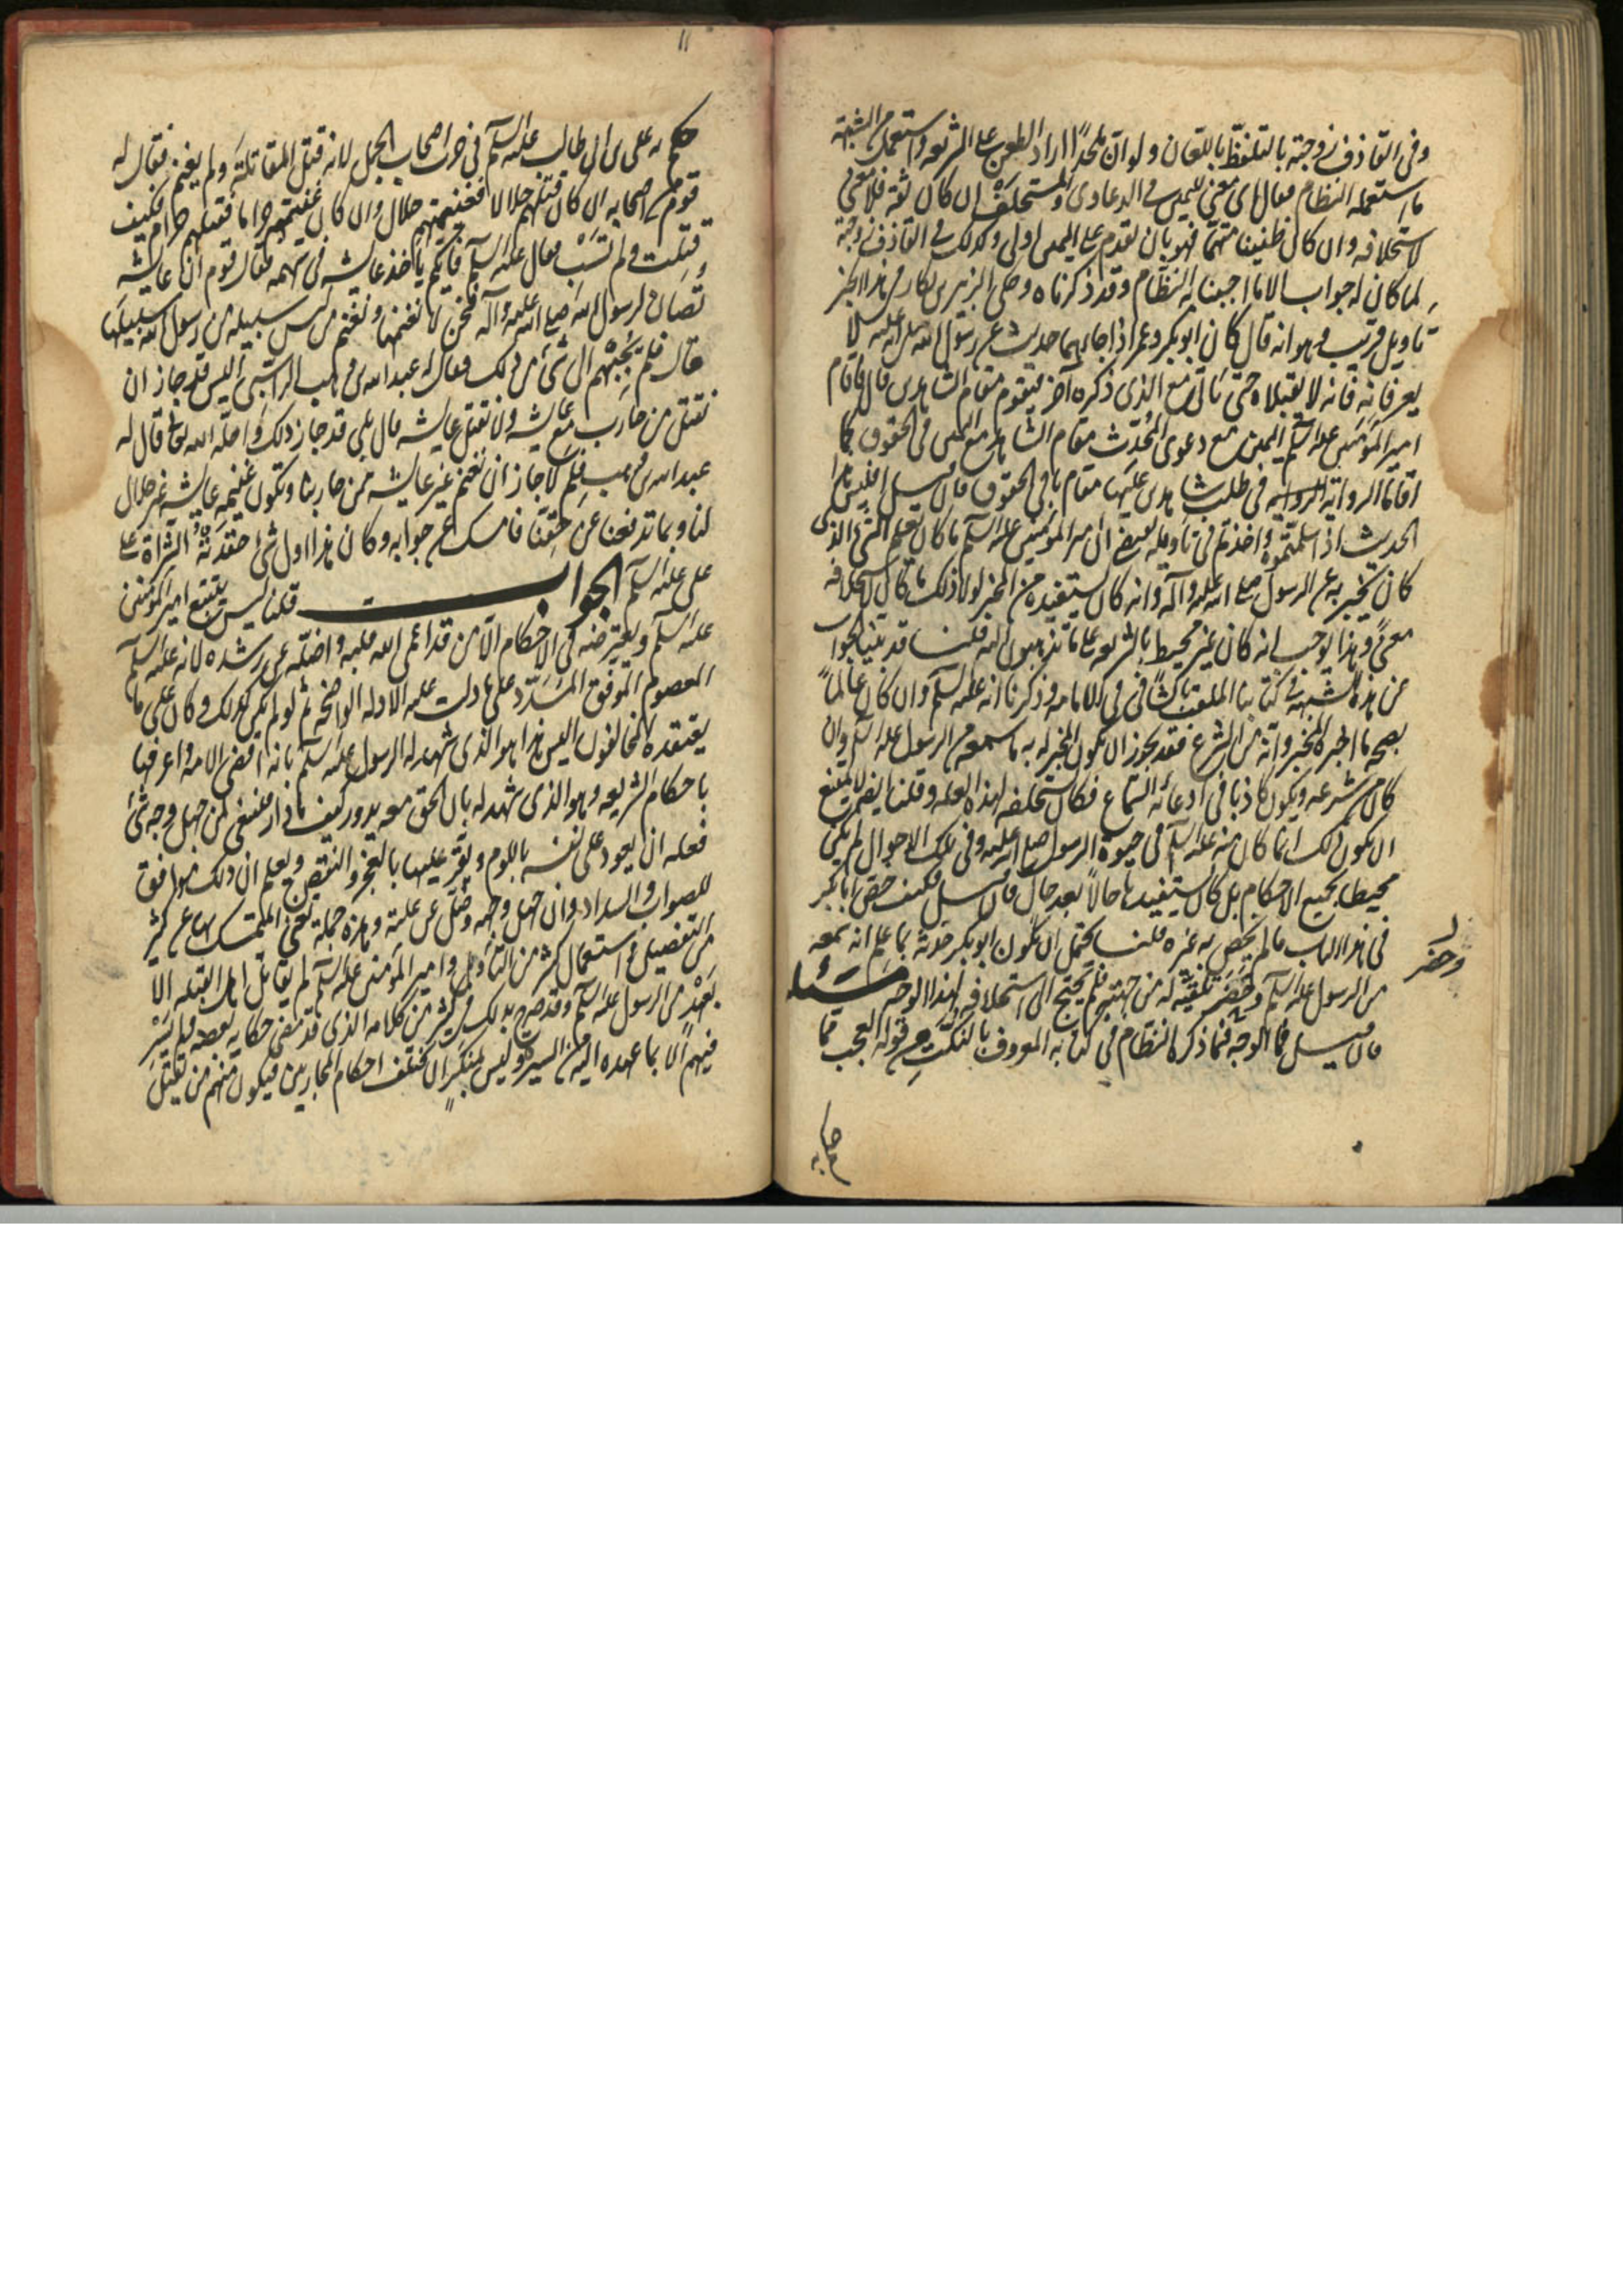 وفى القاذف زوجته بالتلفظ باللعان ولو ان ملحدا اراد الطعن على الشريعه واستعمل من الشبهة
ما استعمله النظام فقال اى معنى لليمين فى الدعاوى والمستحلف ان كان ثقه فلا معنى
لاستحلافه وان كان ظنينا متهما فهو بان يقدم على اليمين اولى وكذلك فى القاذف زوجته
لما كان له جواب الا ما اجبنا به النظام وقد ذكرناه وحكى الزبير بن بكار فى هذا الخبر
تاويل قريب وهو انه قال كان ابو بكر وعمر اذا جاءهما حديث عن رسول الله صلى الله عليه لا
يعرفانه فانه لا يقبلاه حتى ياتى مع الذى ذكره آخر فيقوم مقام الشاهدين قال فاقام
امير المؤمنين عليه السلم اليمين مع دعوى المحدث مقام الشاهد مع اليمين فى الحقوق كما
اقاما الروايه فى طلب شاهدين عليها مقام باقى الحقوق فان قيل افليس هذا
الحديث اذا سلمتموه واخذتم فى تاويله يقتضى ان امير المؤمنين عليه السلم ما كان يعلم الشى الذى
كان يخبر به عن الرسول صلى الله عليه وآله وانه كان يستفيده من المخبر لولا ذلك ما كان لاستحلافه
معنى وهذا يوجب انه كان غير محيط بالشريعه على ما تذهبون اليه قلنا قد بينا الجواب
عن هذه الشبهه فى كتابنا الملقب بالشافى فى الامامه وذكرنا انه عليه السلم وان كان عالما
بصحه ما اخبره المخبر وانه من الشرع فقد يجوز ان يكون المخبر له به ما سمعه من الرسول عليه السلم وان
كان من شرعه ويكون كاذبا فى ادعائه السماع فكان يستحلفه لهذه العله وقلنا ايضا لا يمتنع
ان يكون ذلك انما كان منه عليه السلم فى حيوة الرسول صلى الله عليه وفى تلك الاحوال لم يكن
محيطا بجميع الاحكام بل كان يستفيدها حالا بعد حال فان قيل فكيف خص ابا بكر
فى هذا الباب بما لم يخص به غيره قلنا يحتمل ان يكون ابو بكر حدثه بما علم انه سمعه
من الرسول عليه السلم وحضر تلقيه له من جهته فلم يحتج الى استحلافه لهذا الوجه مسئله
فان قيل فما الوجه فيما ذكره النظام فى كتابه المعروف بالنكت من قوله العجب مما
وحضر
حكم به
حكم به على بن ابى طالب عليه السلم فى حرب اصحاب الجمل لانه قتل المقاتله ولم يغنم فقال له
قوم من اصحابه ان كان قتلهم حلالا فغنيمتهم حلال وان كان غنيمتهم حراما فقتلهم حرام فكيف
قتلت ولم تسب فقال عليه السلم فايكم ياخذ عايشه فى سهمه فقال قوم ان عايشه
تصان لرسول الله صلى الله عليه وآله فنحن لا نغنمها ونغنم من ليس سبيله من رسول الله سبيلها
قال فلم يجبهم الى شئ من ذلك فقال له عبد الله بن وهب الراسبى اليس قد جاز ان
نقتل من حارب مع عايشه ولا نقتل عايشه قال بلى قد جاز ذلك واحله الله تعالى قال له
عبد الله بن وهب فلم لا جاز ان نغنم غير عايشه ممن حاربنا وتكون غنيمه عايشه غير حلال
لنا وبما تدفعنا عن حقنا فامسك عن جوابه وكان هذا اول شئ حقدته الشراة على
على عليه السلم الجواب قلنا ليس يتتبع امير المؤمنين
عليه السلم ويعترضه فى الاحكام الا من قد اعمى الله قلبه واضله عن رشده لانه عليه السلم
المعصوم الموفق المسدد على ما دلت عليه الادله الواضحه ثم لو لم يكن كذلك وكان على ما
يعتقده المخالفون اليس هذا هو الذى شهد له الرسول عليه السلم بانه اقضى الامه واعرفها
باحكام الشريعه وهو الذى شهد له بان الحق معه يدور كيف ما دار فينبغى لمن جهل وجه شئ
فعله ان يعود على نفسه باللوم ويقر عليها بالعجز والنقص ويعلم ان ذلك موافق
للصواب والسداد وان جهل وجهه وضل عن علته وهذه جمله تغنى المتمسك بها عن كثير
من التفصيل فى استعمال كثير من التاويل وامير المؤمنين عليه السلم لم يقاتل اهل القبله الا
بعهد من الرسول عليه السلم وقد صرح بذلك فى كثير من كلامه الذى قد مضى حكايه بعضه ولم يسر
فيهم الا بما عهده اليه من السيره وليس بمنكر ان تختلف احكام المحاربين فيكون منهم من يقتل